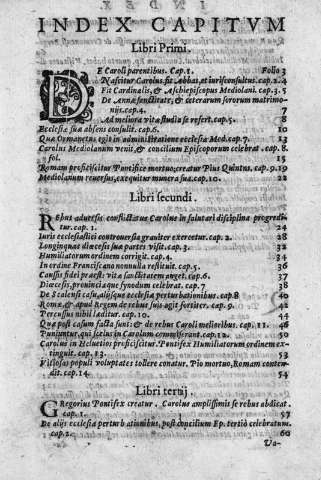 INDEX CAPITVM
Libri Primi.
DE Caroli parentibus. Cap. 1. Folio 3
Nascitur Carolus, fit Abbas, et iurisconsultus. cap. 2. 4
Fit Cardinalis, & Archiepiscopus Mediolani. cap. 3. 5
De Annæ sanctitate, & ceterarum sororum matrimonijs. cap. 4. 7
Ad meliora vitæ studia se refert. cap. 5. 8
Ecclesiæ suæ absens consulit. cap. 6. 10
Quæ Ormanetus egit in administratione ecclesiæ Med. cap. 7. 13
Carolus Mediolanum venit, & concilium Episcoporum celebrat. cap. 8.
fol. 15
Romam proficiscitur Pontifice mortuo, creatur Pius Quintus. cap. 9. 19
Mediolanum reuersus, exequitur munera sua. cap. 10. 22
Libri secundi.
REbus aduersis conflictatus Carolus in salutari disciplina progreditur. cap. 1. 24
Iuris ecclesiastici controuersia grauiter exercetur. cap. 2. 28
Longinquas diœcesis suæ partes visit. cap. 3. 32
Humiliatorum ordinem corrigit. cap. 4. 34
In ordine Franciscano nonnulla restituit. cap. 5. 36
Caussis fidei præest: vitæ sanctitatem auget. cap. 6. 37
Diœcesis, prouinciæque synodum celebrat. cap. 7 38
De Scalensi casu, alijsque ecclesiæ perturbationibus. cap. 8 40
Romæ, & apud Regem de rebus suis agit fortiter. cap. 9. 42
Percussus nihil læditur. cap. 10. 44
Quæ post casum facta sunt: & de rebus Caroli molientibus. cap. 11. 46
Puniuntur, qui scelus in Carolum conuerserant. cap. 12. 50
Carolus in Heluetios proficiscitur. Pontifex Humiliatorum ordinem extinguit. cap. 13. 53
Vitiosas populi voluptates tollere conatur. Pio mortuo, Romam contendit. cap. 14. 54
Libri tertij.
GRegorius Pontifex creatur. Carolus amplissimis se rebus abdicat.
cap. 1. 57
De alijs ecclesiæ perturbationibus, post concilium Ep. tertiò celebratum.
cap. 2. 60
Va-